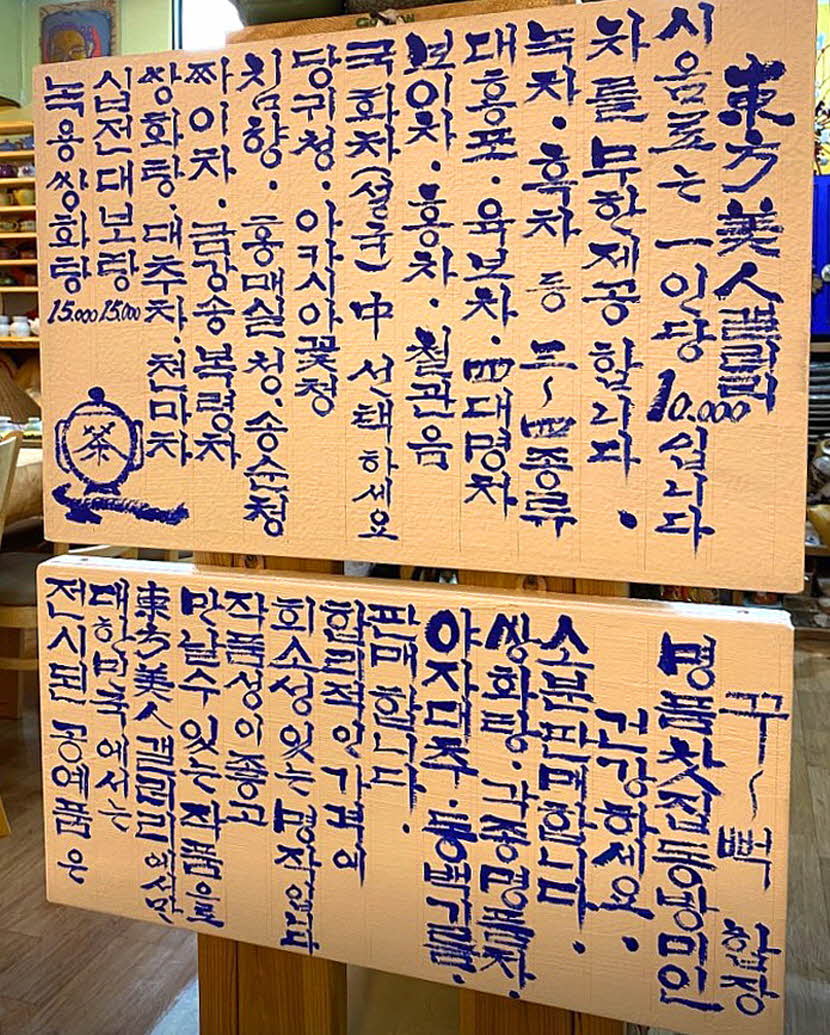 東方美人갤러리
시음료는 一인당 10.000십니다
차를 무한제공 합니다.
녹차. 흑차 등 三~四종류
대홍포. 육보차. 四대명차
보이차. 홍차. 철관음
국화차(설국) 中 선택하세요
당귀청. 아카시아꽃청
침향. 홍매실청. 송순청
짜이차. 금강송 복령차
쌍화탕. 대추차. 천마차
십전대보탕 15.000
녹용쌍화탕 15.000
茶
전시된 공예품은
대한민국에서는
東方美人갤러리에서만
만날수 있는 작품으로
작품성이 좋고
희소성있는 명작입니다
합리적인 가격에
판매합니다.
야자대추. 동백기름.
쌍화탕. 각종명품차.
소분판매합니다.
건강하세요.
명품찻집동방미인
꾸~벅 합장